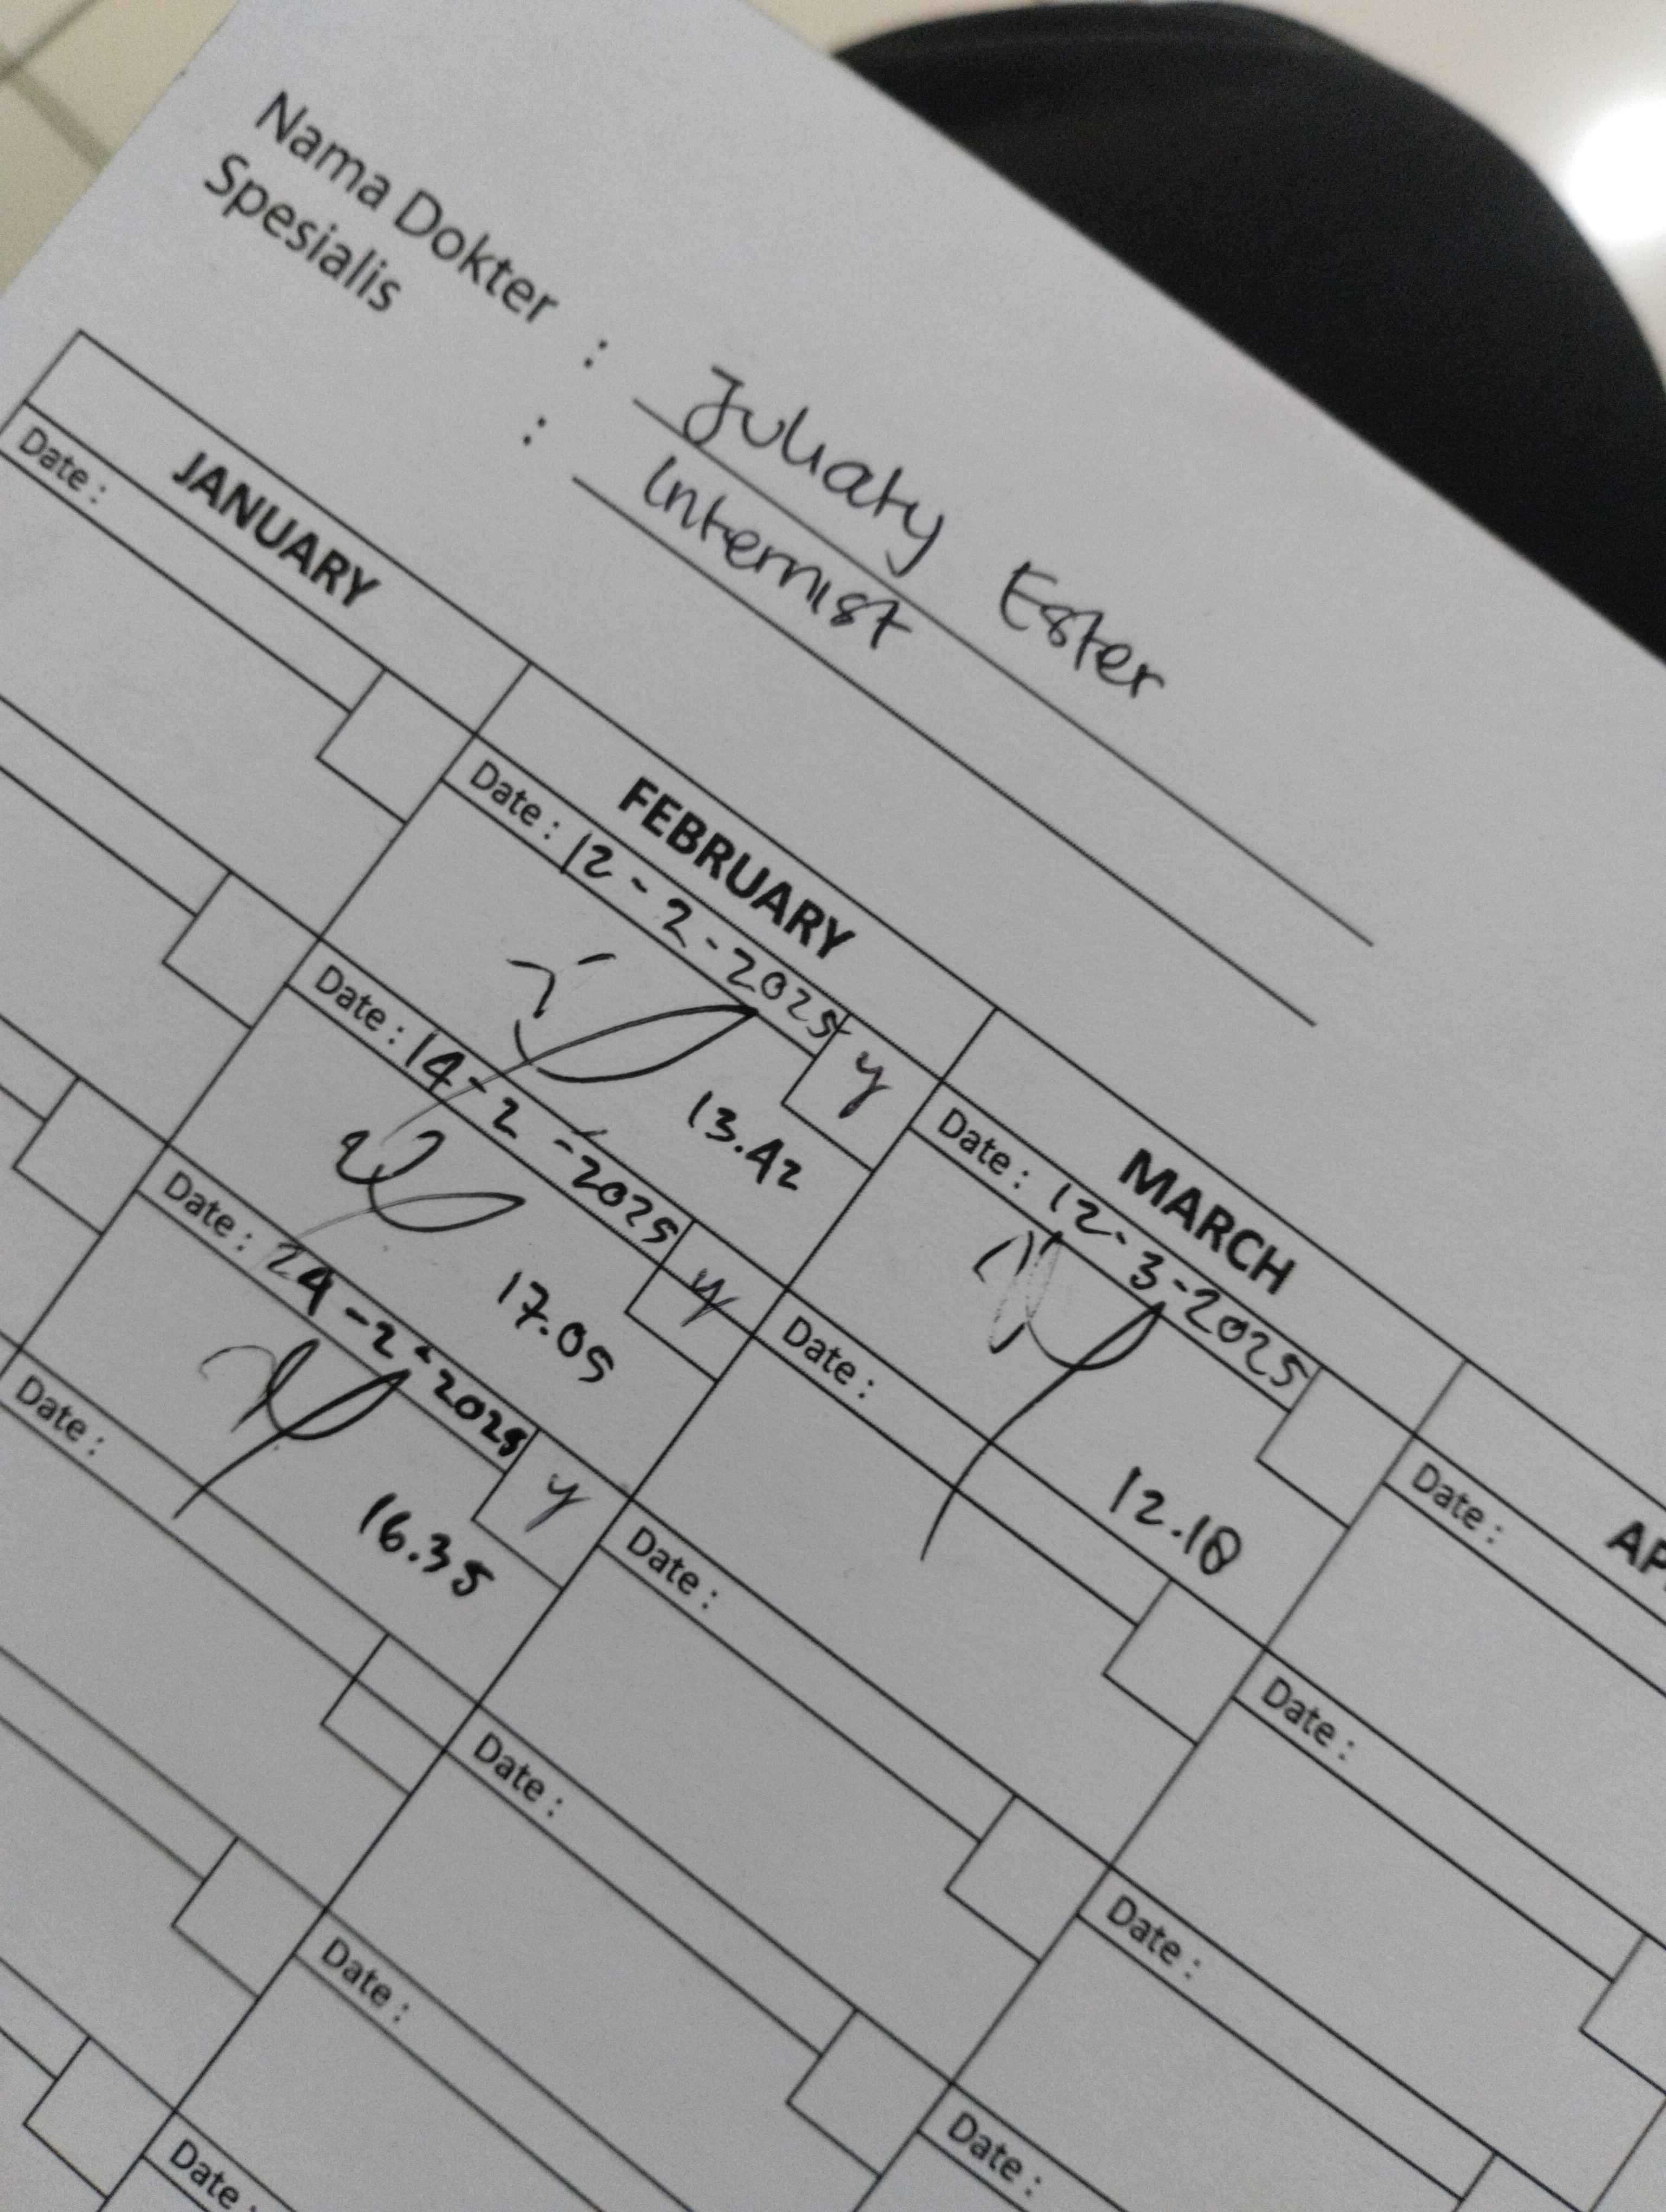 Nama Dokter : Juliaty Ester
Spesialis : Internist
JANUARY FEBRUARY MARCH
Date : Date : 12-2-2025 y Date : 12-3-2025 Date :
13.42 12.18
Date : 14-2-2025 Date : Date :
17.05
Date : 24-2-2025 y Date : Date :
16.35
Date : Date : Date :
Date :
Date :